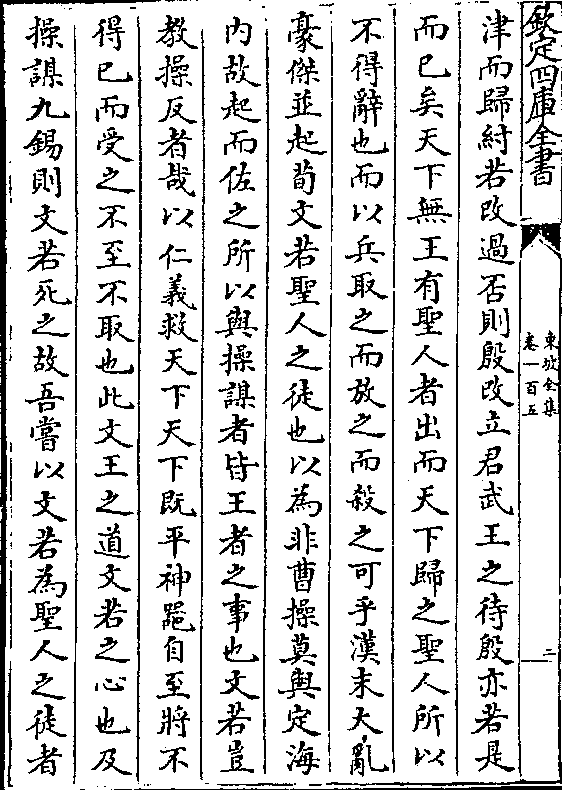 欽定四庫全書
東坡全集
卷一百五
二
津而歸紂若改過否則殷改立君武王之待殷亦若是
而已矣天下無王有聖人者出而天下歸之聖人所以
不得辭也而以兵取之而放之而殺之可乎漢末大亂
豪傑並起荀文若聖人之徒也以為非曹操莫與定海
内故起而佐之所以與操謀者皆王者之事也文若豈
教操反者哉以仁義救天下天下既平神器自至將不
得已而受之不至不取也此文王之道文若之心也及
操謀九錫則文若死之故吾嘗以文若為聖人之徒者